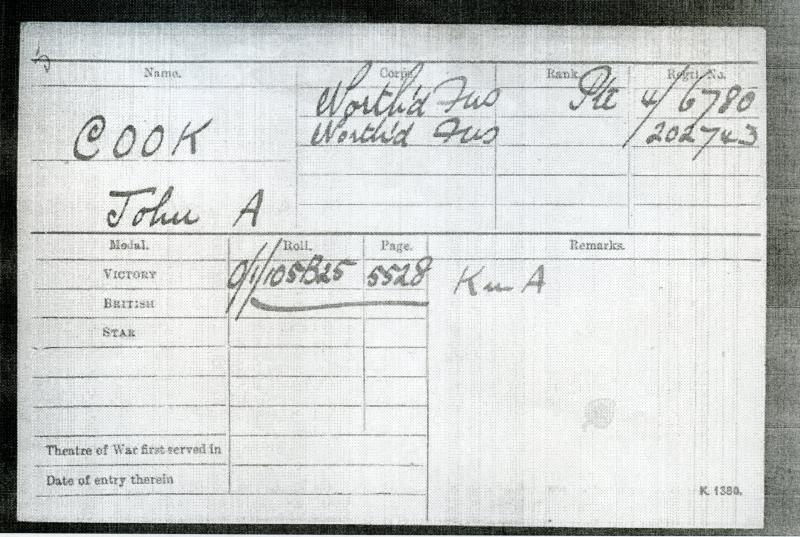 Name. Corps. Rank. Regtl. No.
COOK North'd Fus Pte 4/6780
North'd Fus 202743
John A
Medal. Roll. Page. Remarks.
VICTORY O/1/105B25 5528 K in A
BRITISH
STAR
Theatre of War first served in
Date of entry therein
K. 1380.